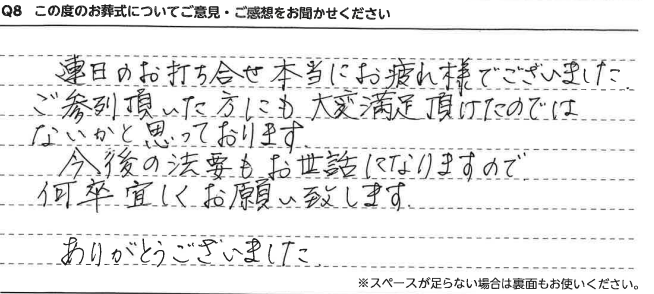 Q8 この度のお葬式についてご意見・ご感想をお聞かせください
連日のお打ち合せ本当にお疲れ様でございました.
ご参列頂いた方にも大変満足頂けたのでは
ないかと思っております.
今後の法要もお世話になりますので
何卒宜しくお願い致します.
ありがとうございました.
※スペースが足らない場合は裏面もお使いください。